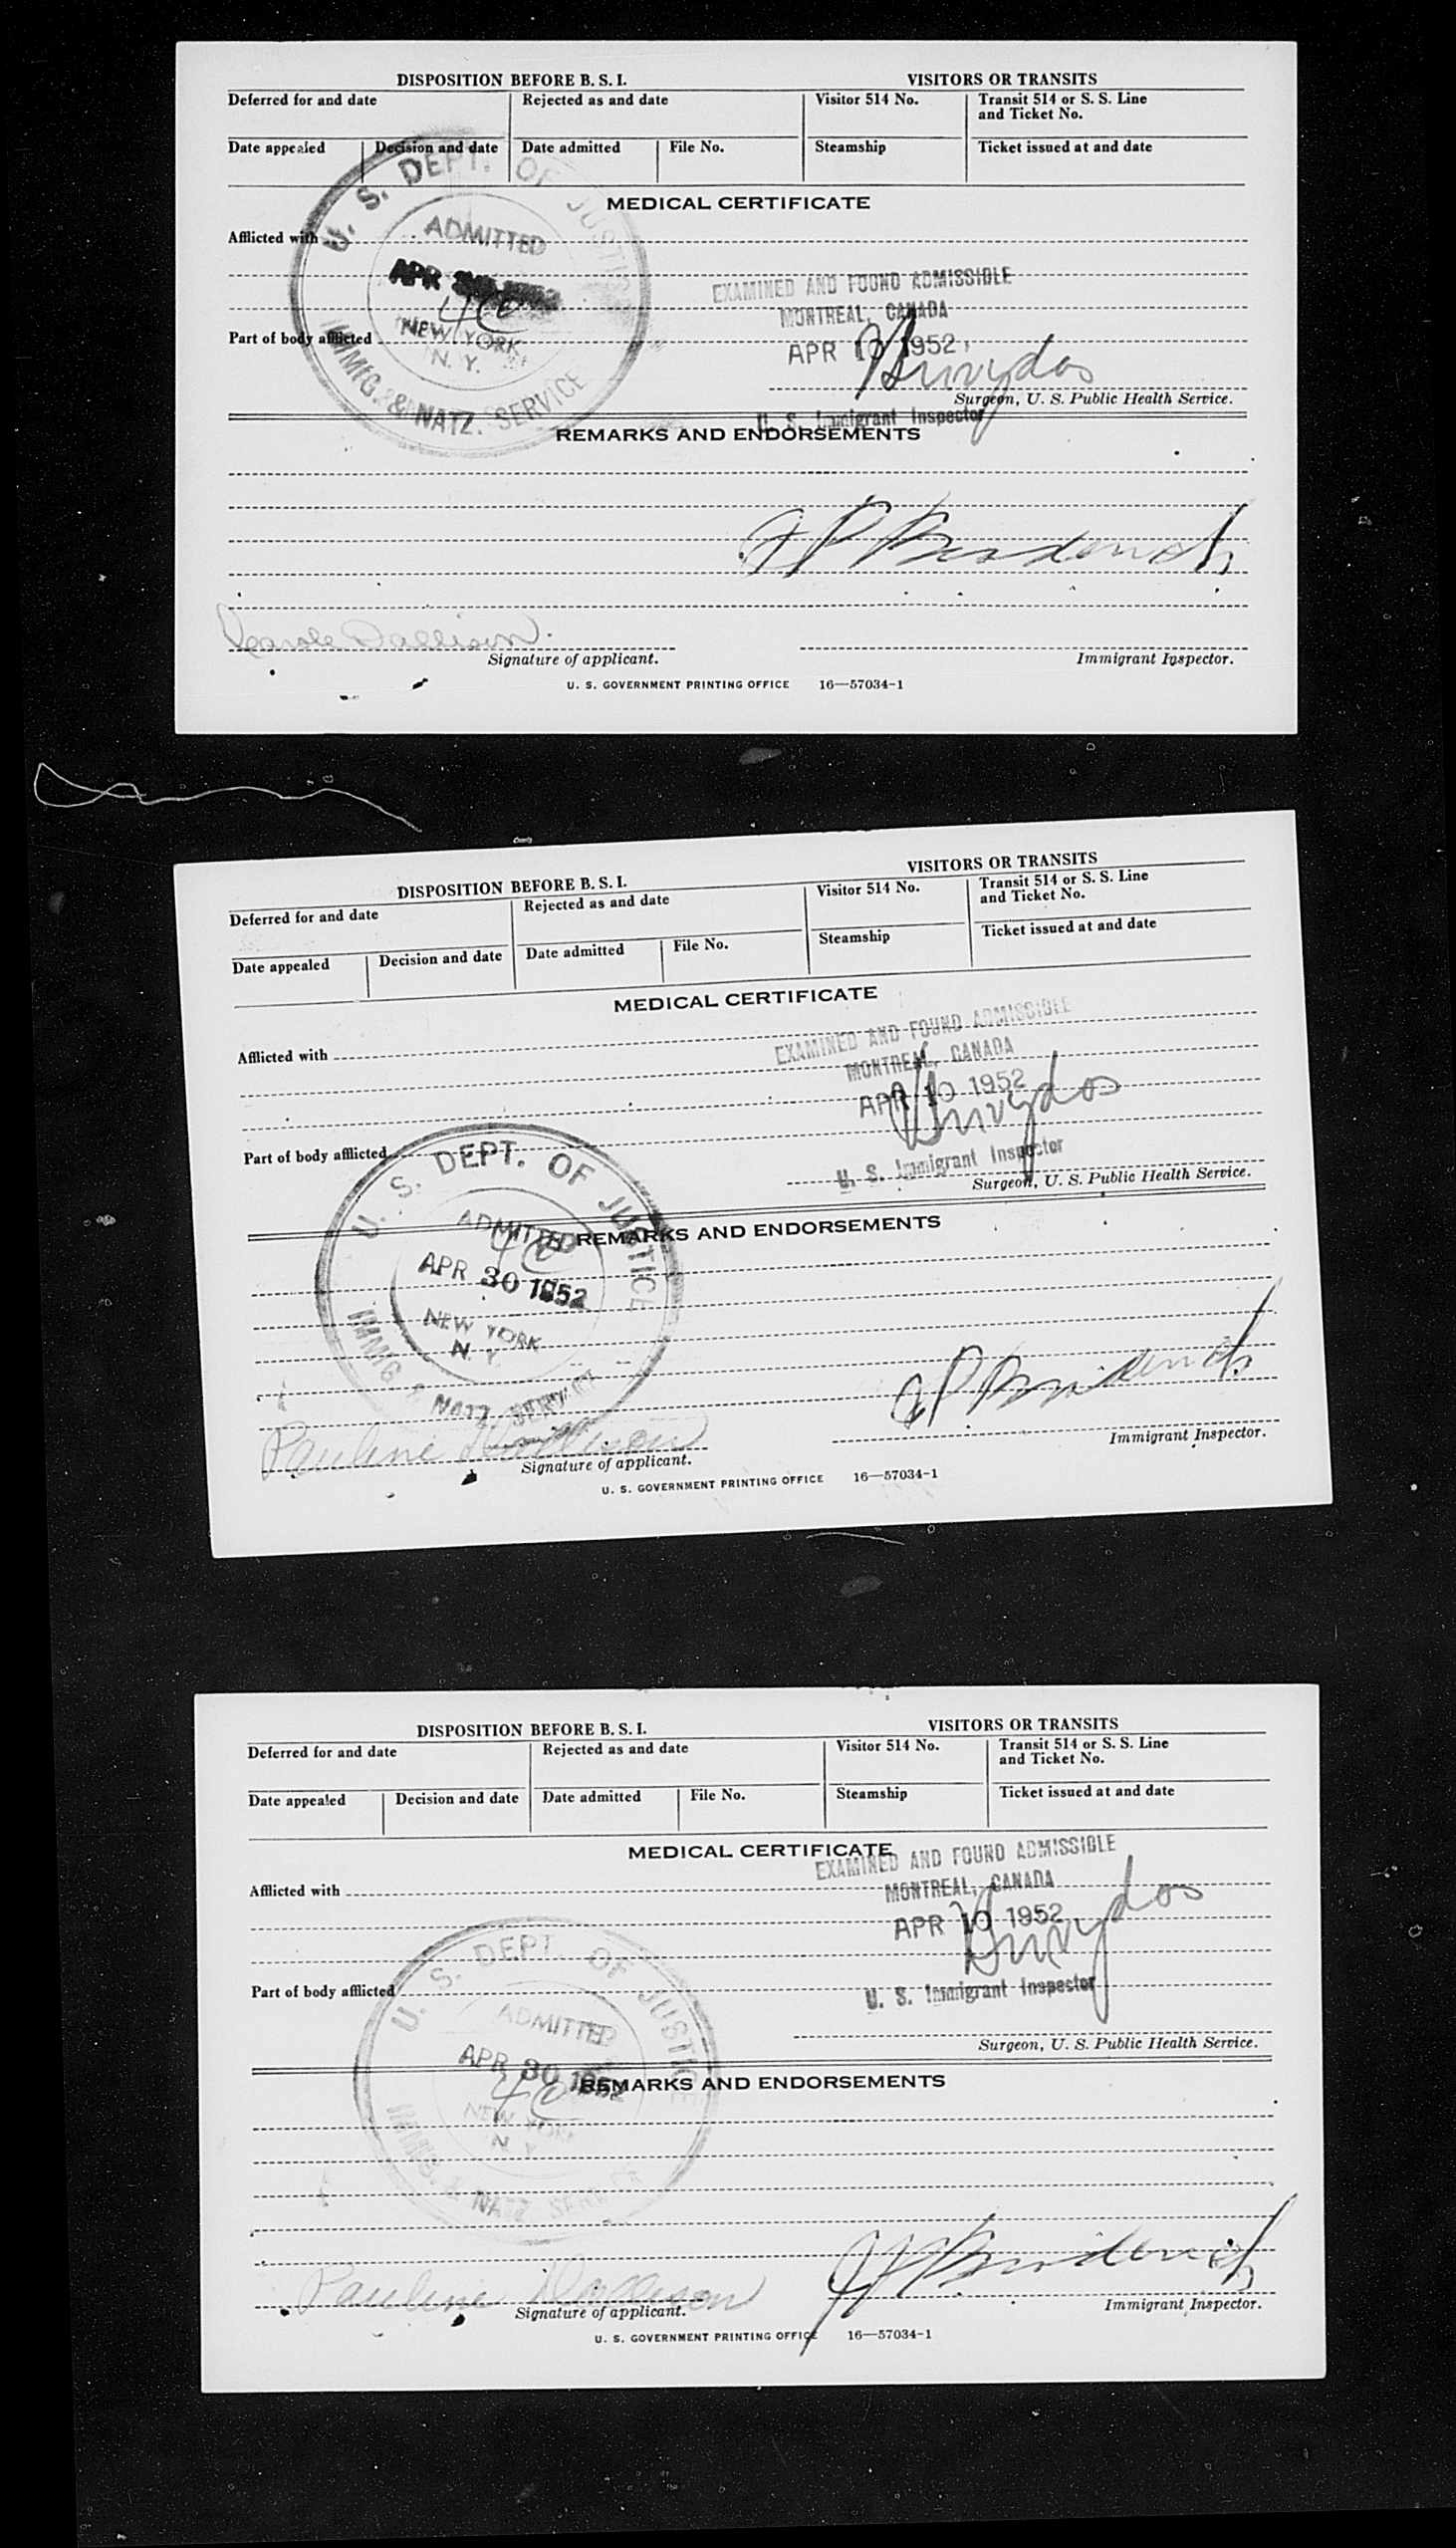 DISPOSITION BEFORE B. S. I.
VISITORS OR TRANSITS
Deferred for and date
Rejected as and date
Visitor 514 No.
Transit 514 or S. S. Line
and Ticket No.
Date appealed
Decision and date
Date admitted
File No.
Steamship
Ticket issued at and date
MEDICAL CERTIFICATE
Afflicted with
U. S. DEPT. OF JUSTICE
ADMITTED
APR
4C
NEW YORK
N. Y.
IMMIG. & NATZ. SERVICE
EXAMINED AND FOUND ADMISSIBLE
MONTREAL, CANADA
APR 10 1952
Part of body afflicted
Surgeon, U. S. Public Health Service.
U. S. Immigrant Inspector
REMARKS AND ENDORSEMENTS
Carole Dallison
Signature of applicant.
Immigrant Inspector.
U. S. GOVERNMENT PRINTING OFFICE 16—57034-1
DISPOSITION BEFORE B. S. I.
VISITORS OR TRANSITS
Deferred for and date
Rejected as and date
Visitor 514 No.
Transit 514 or S. S. Line
and Ticket No.
Date appealed
Decision and date
Date admitted
File No.
Steamship
Ticket issued at and date
MEDICAL CERTIFICATE
Afflicted with
EXAMINED AND FOUND ADMISSIBLE
MONTREAL, CANADA
APR 10 1952
Part of body afflicted
U. S. Immigrant Inspector
Surgeon, U. S. Public Health Service.
U. S. DEPT. OF JUSTICE
ADMITTED
4C
APR 30 1952
NEW YORK
N. Y.
IMMIG. & NATZ. SERVICE
REMARKS AND ENDORSEMENTS
Pauline Dallison
Signature of applicant.
Immigrant Inspector.
U. S. GOVERNMENT PRINTING OFFICE 16—57034-1
DISPOSITION BEFORE B. S. I.
VISITORS OR TRANSITS
Deferred for and date
Rejected as and date
Visitor 514 No.
Transit 514 or S. S. Line
and Ticket No.
Date appealed
Decision and date
Date admitted
File No.
Steamship
Ticket issued at and date
MEDICAL CERTIFICATE
EXAMINED AND FOUND ADMISSIBLE
Afflicted with
MONTREAL, CANADA
APR 10 1952
Part of body afflicted
U. S. Immigrant Inspector
Surgeon, U. S. Public Health Service.
U. S. DEPT. OF JUSTICE
ADMITTED
APR 30 1952
4C
NEW YORK
N. Y.
IMMIG. & NATZ. SERVICE
REMARKS AND ENDORSEMENTS
Pauline Dallison
Signature of applicant.
Immigrant Inspector.
U. S. GOVERNMENT PRINTING OFFICE 16—57034-1